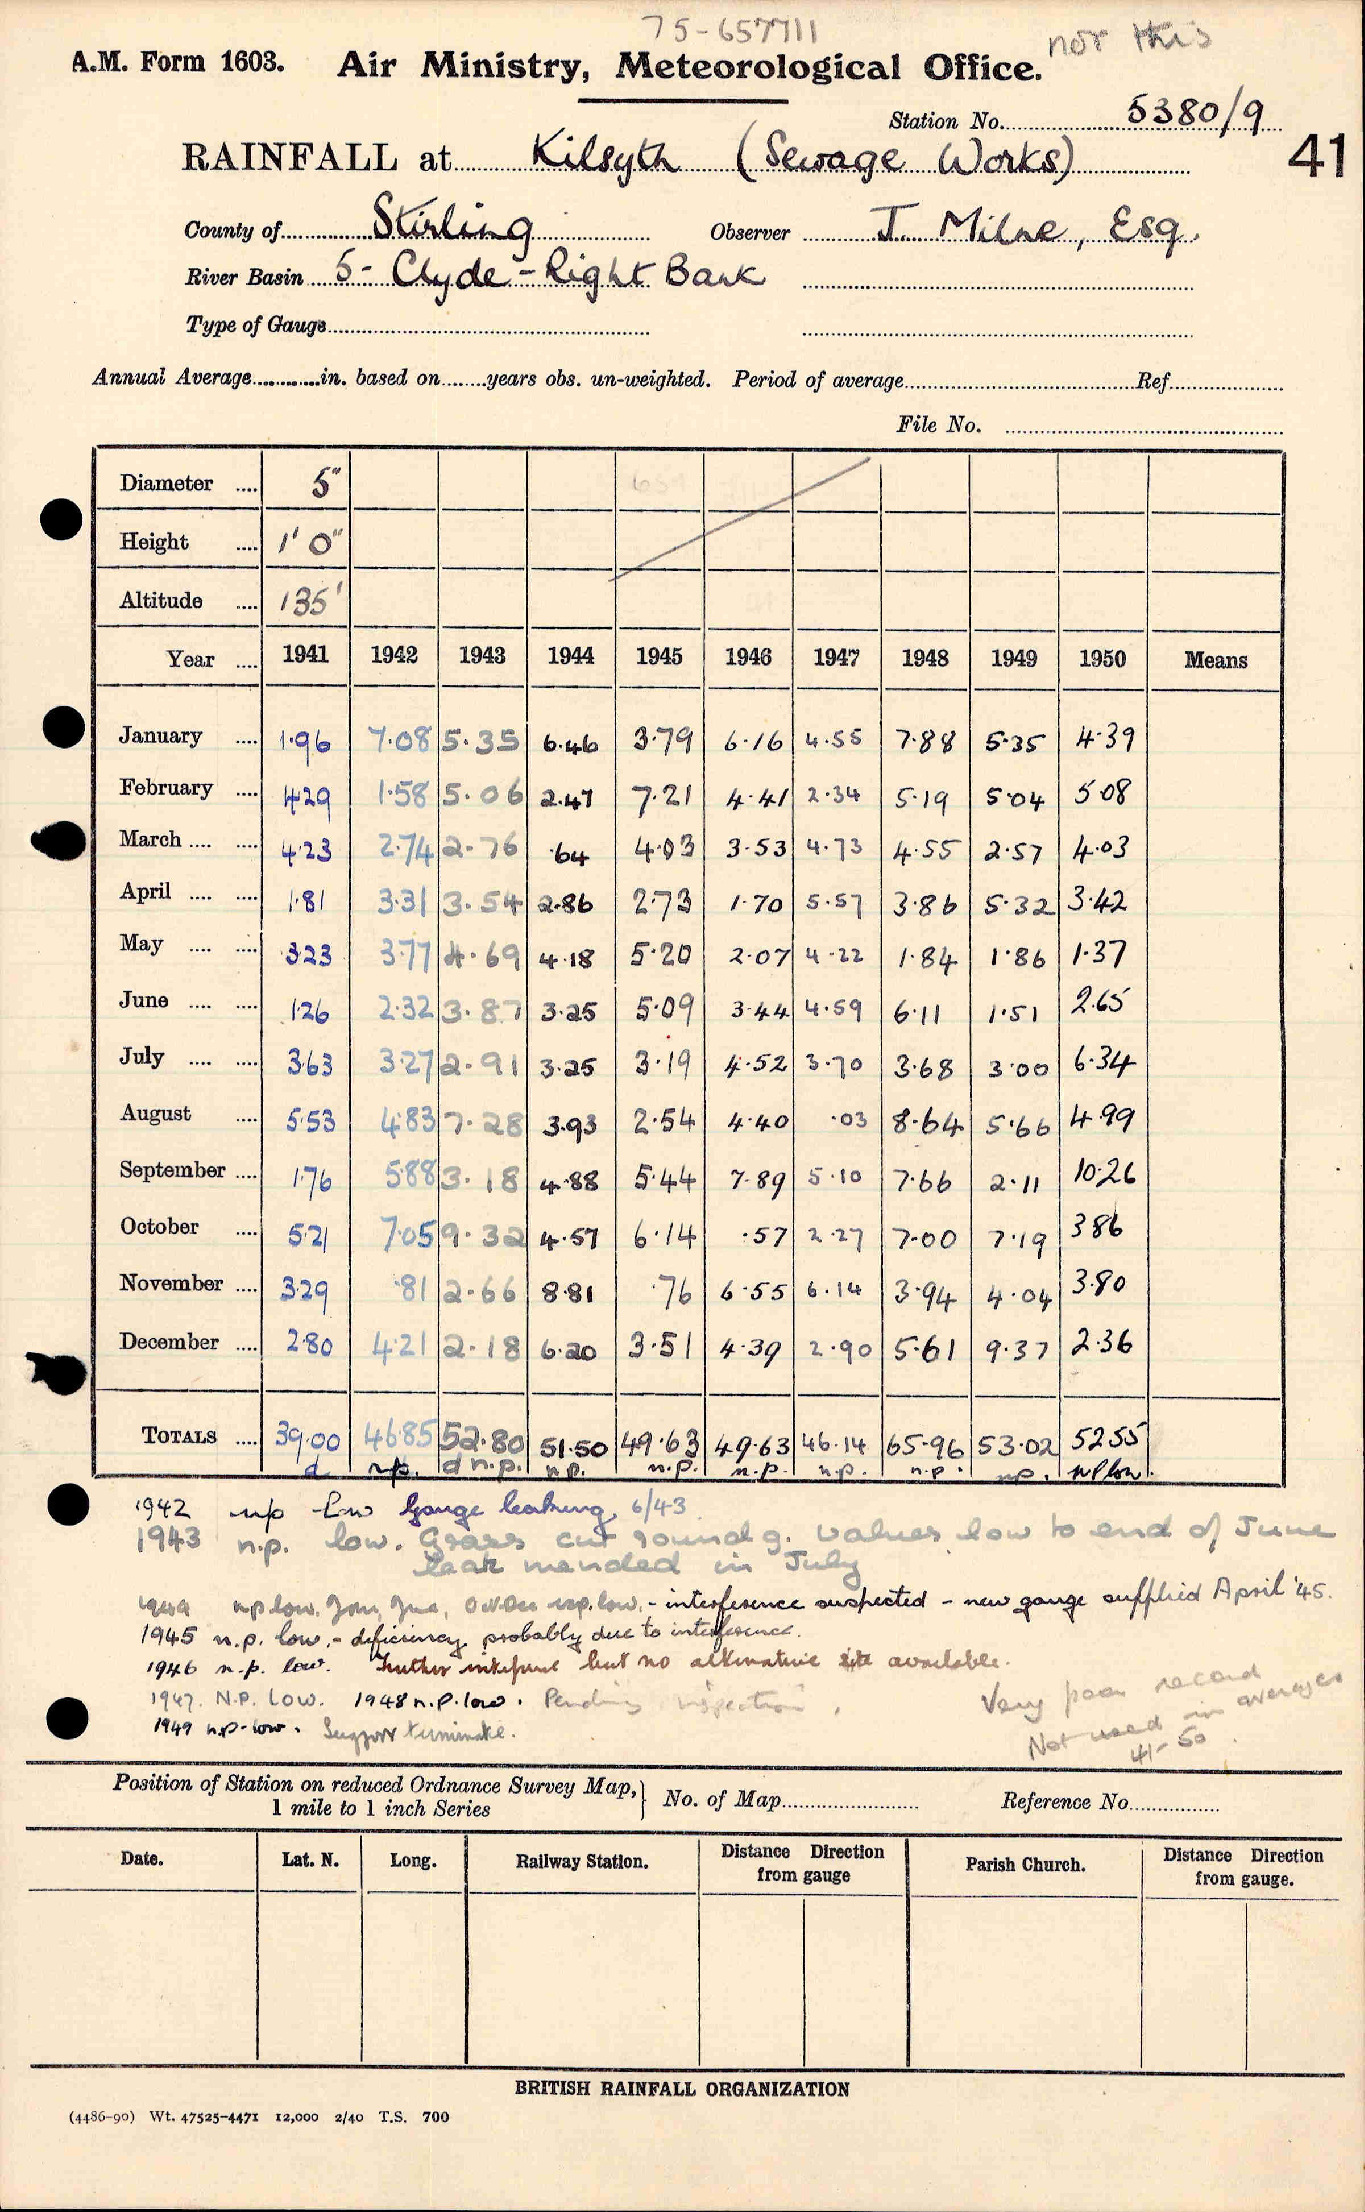 75-657711
nor this
A.M. Form 1603. Air Ministry, Meteorological Office.
Station No. 5380/9
41
RAINFALL at Kilsyth (Sewage Works)
County of Stirling Observer J. Milne, Esq.
River Basin 5- Clyde - Right Bank
Type of Gauge
Annual Average in. based on years obs. un-weighted. Period of average Ref.
File No.
Diameter 5"
Height 1' 0"
Altitude 135'
Year 1941 1942 1943 1944 1945 1946 1947 1948 1949 1950 Means
January 1.96 7.08 5.35 6.46 3.79 6.16 4.55 7.88 5.35 4.39
February 4.29 1.58 5.06 2.47 7.21 4.41 2.34 5.19 5.04 5.08
March 4.23 2.74 2.76 .64 4.03 3.53 4.73 4.55 2.57 4.03
April 1.81 3.31 3.54 2.86 2.73 1.70 5.57 3.86 5.32 3.42
May 3.23 3.77 4.69 4.18 5.20 2.07 4.22 1.84 1.86 1.37
June 1.26 2.32 3.87 3.25 5.09 3.44 4.59 6.11 1.51 2.65
July 3.63 3.27 2.91 3.25 3.19 4.52 3.70 3.68 3.00 6.34
August 5.53 4.83 7.28 3.93 2.54 4.40 .03 8.64 5.66 4.99
September 1.76 5.88 3.18 4.88 5.44 7.89 5.10 7.66 2.11 10.26
October 5.21 7.05 9.32 4.57 6.14 .57 2.27 7.00 7.19 3.86
November 3.29 .81 2.66 8.81 .76 6.55 6.14 3.94 4.04 3.80
December 2.80 4.21 2.18 6.20 3.51 4.39 2.90 5.61 9.37 2.36
TOTALS 39.00 46.85 52.80 51.50 49.63 49.63 46.14 65.96 53.02 52.55
d n.p. d n.p. n.p. n.p. n.p. n.p. n.p. np. np low.
1942 n/p low Gauge leaking 6/43
1943 n.p. low. Grass cut round g. values low to end of June
leak mended in July
1944 np low. Jan, June, Oct Dec n.p. low. - interference suspected - new gauge supplied April '45.
1945 n.p. low. - deficiency probably due to interference.
1946 n.p. low. Further interference but no alternative site available.
1947. N.P. Low. 1948 n.p. low. Pending inspection.
1949 n.p. low. Suggest terminate.
Very poor record
Not used in averages
41-50.
Position of Station on reduced Ordnance Survey Map, 1 mile to 1 inch Series No. of Map Reference No.
Date. Lat. N. Long. Railway Station. Distance Direction from gauge Parish Church. Distance Direction from gauge.
BRITISH RAINFALL ORGANIZATION
(4486-90) Wt. 47525-4471 12,000 2/40 T.S. 700